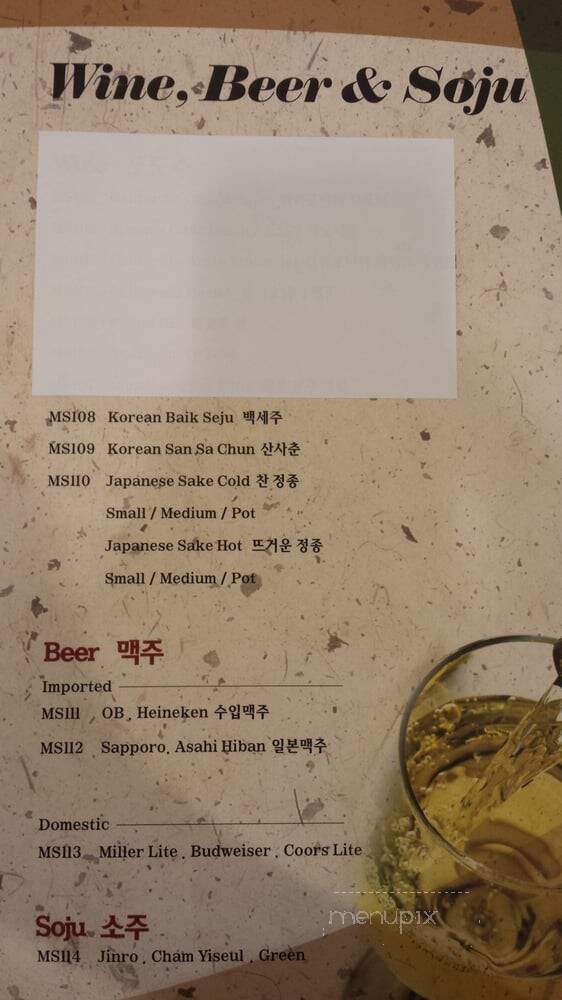 Wine, Beer & Soju
MS108 Korean Baik Seju 백세주
MS109 Korean San Sa Chun 산사춘
MS110 Japanese Sake Cold 찬 정종
Small / Medium / Pot
Japanese Sake Hot 뜨거운 정종
Small / Medium / Pot
Beer 맥주
Imported
MS111 OB , Heineken 수입맥주
MS112 Sapporo, Asahi Hiban 일본맥주
Domestic
MS113 Miller Lite , Budweiser , Coors Lite
Soju 소주
MS114 Jinro , Cham Yiseul , Green
menupix